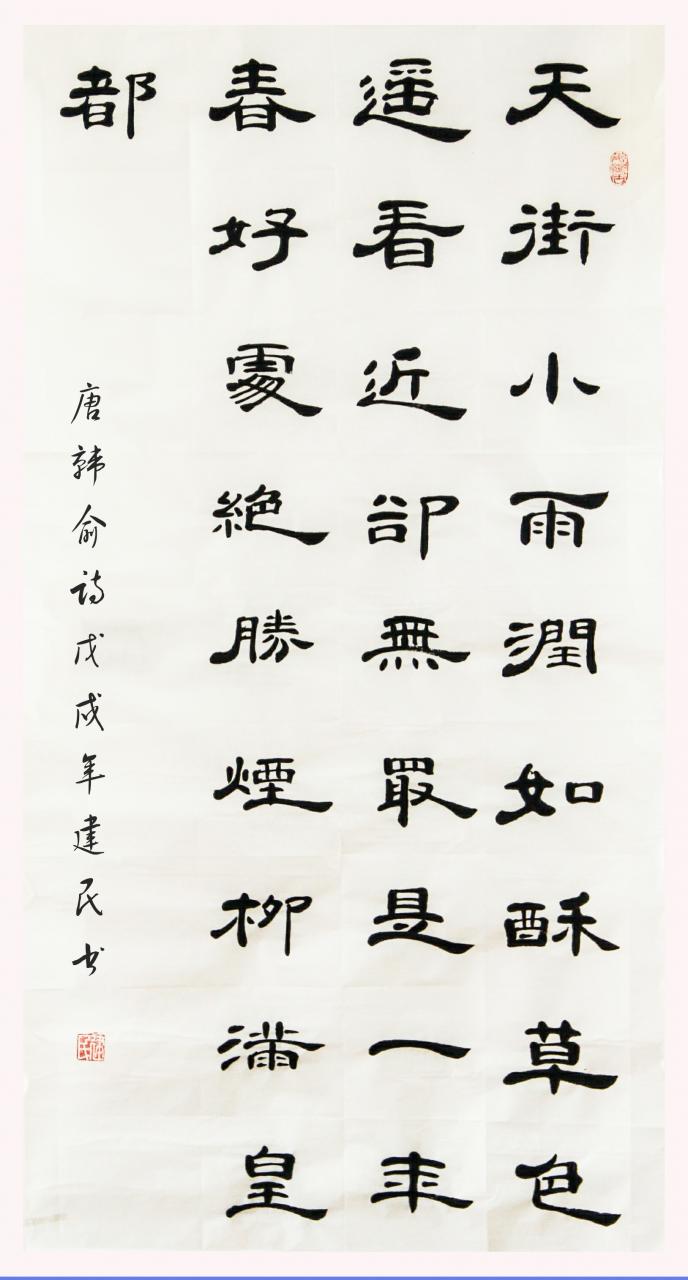 天街小雨潤如酥草色
遥看近卻無最是一年
春好處絶勝煙柳滿皇
都
唐韩俞诗戊戌年建民书